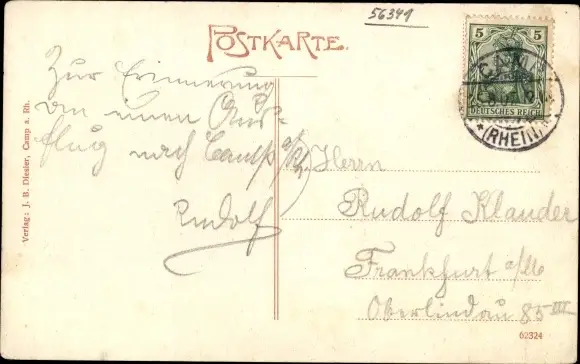 56341
POSTKARTE.
5 5
DEUTSCHES REICH
CAMP
(RHEIN)
Zur Erinnerung
an einen Aus-
flug nach Camp a/Rh.
Rudolf
Herrn
Rudolf Klauder
Frankfurt a/M
Oberlindau 85 III
62324
Verlag: J. B. Diesler, Camp a. Rh.